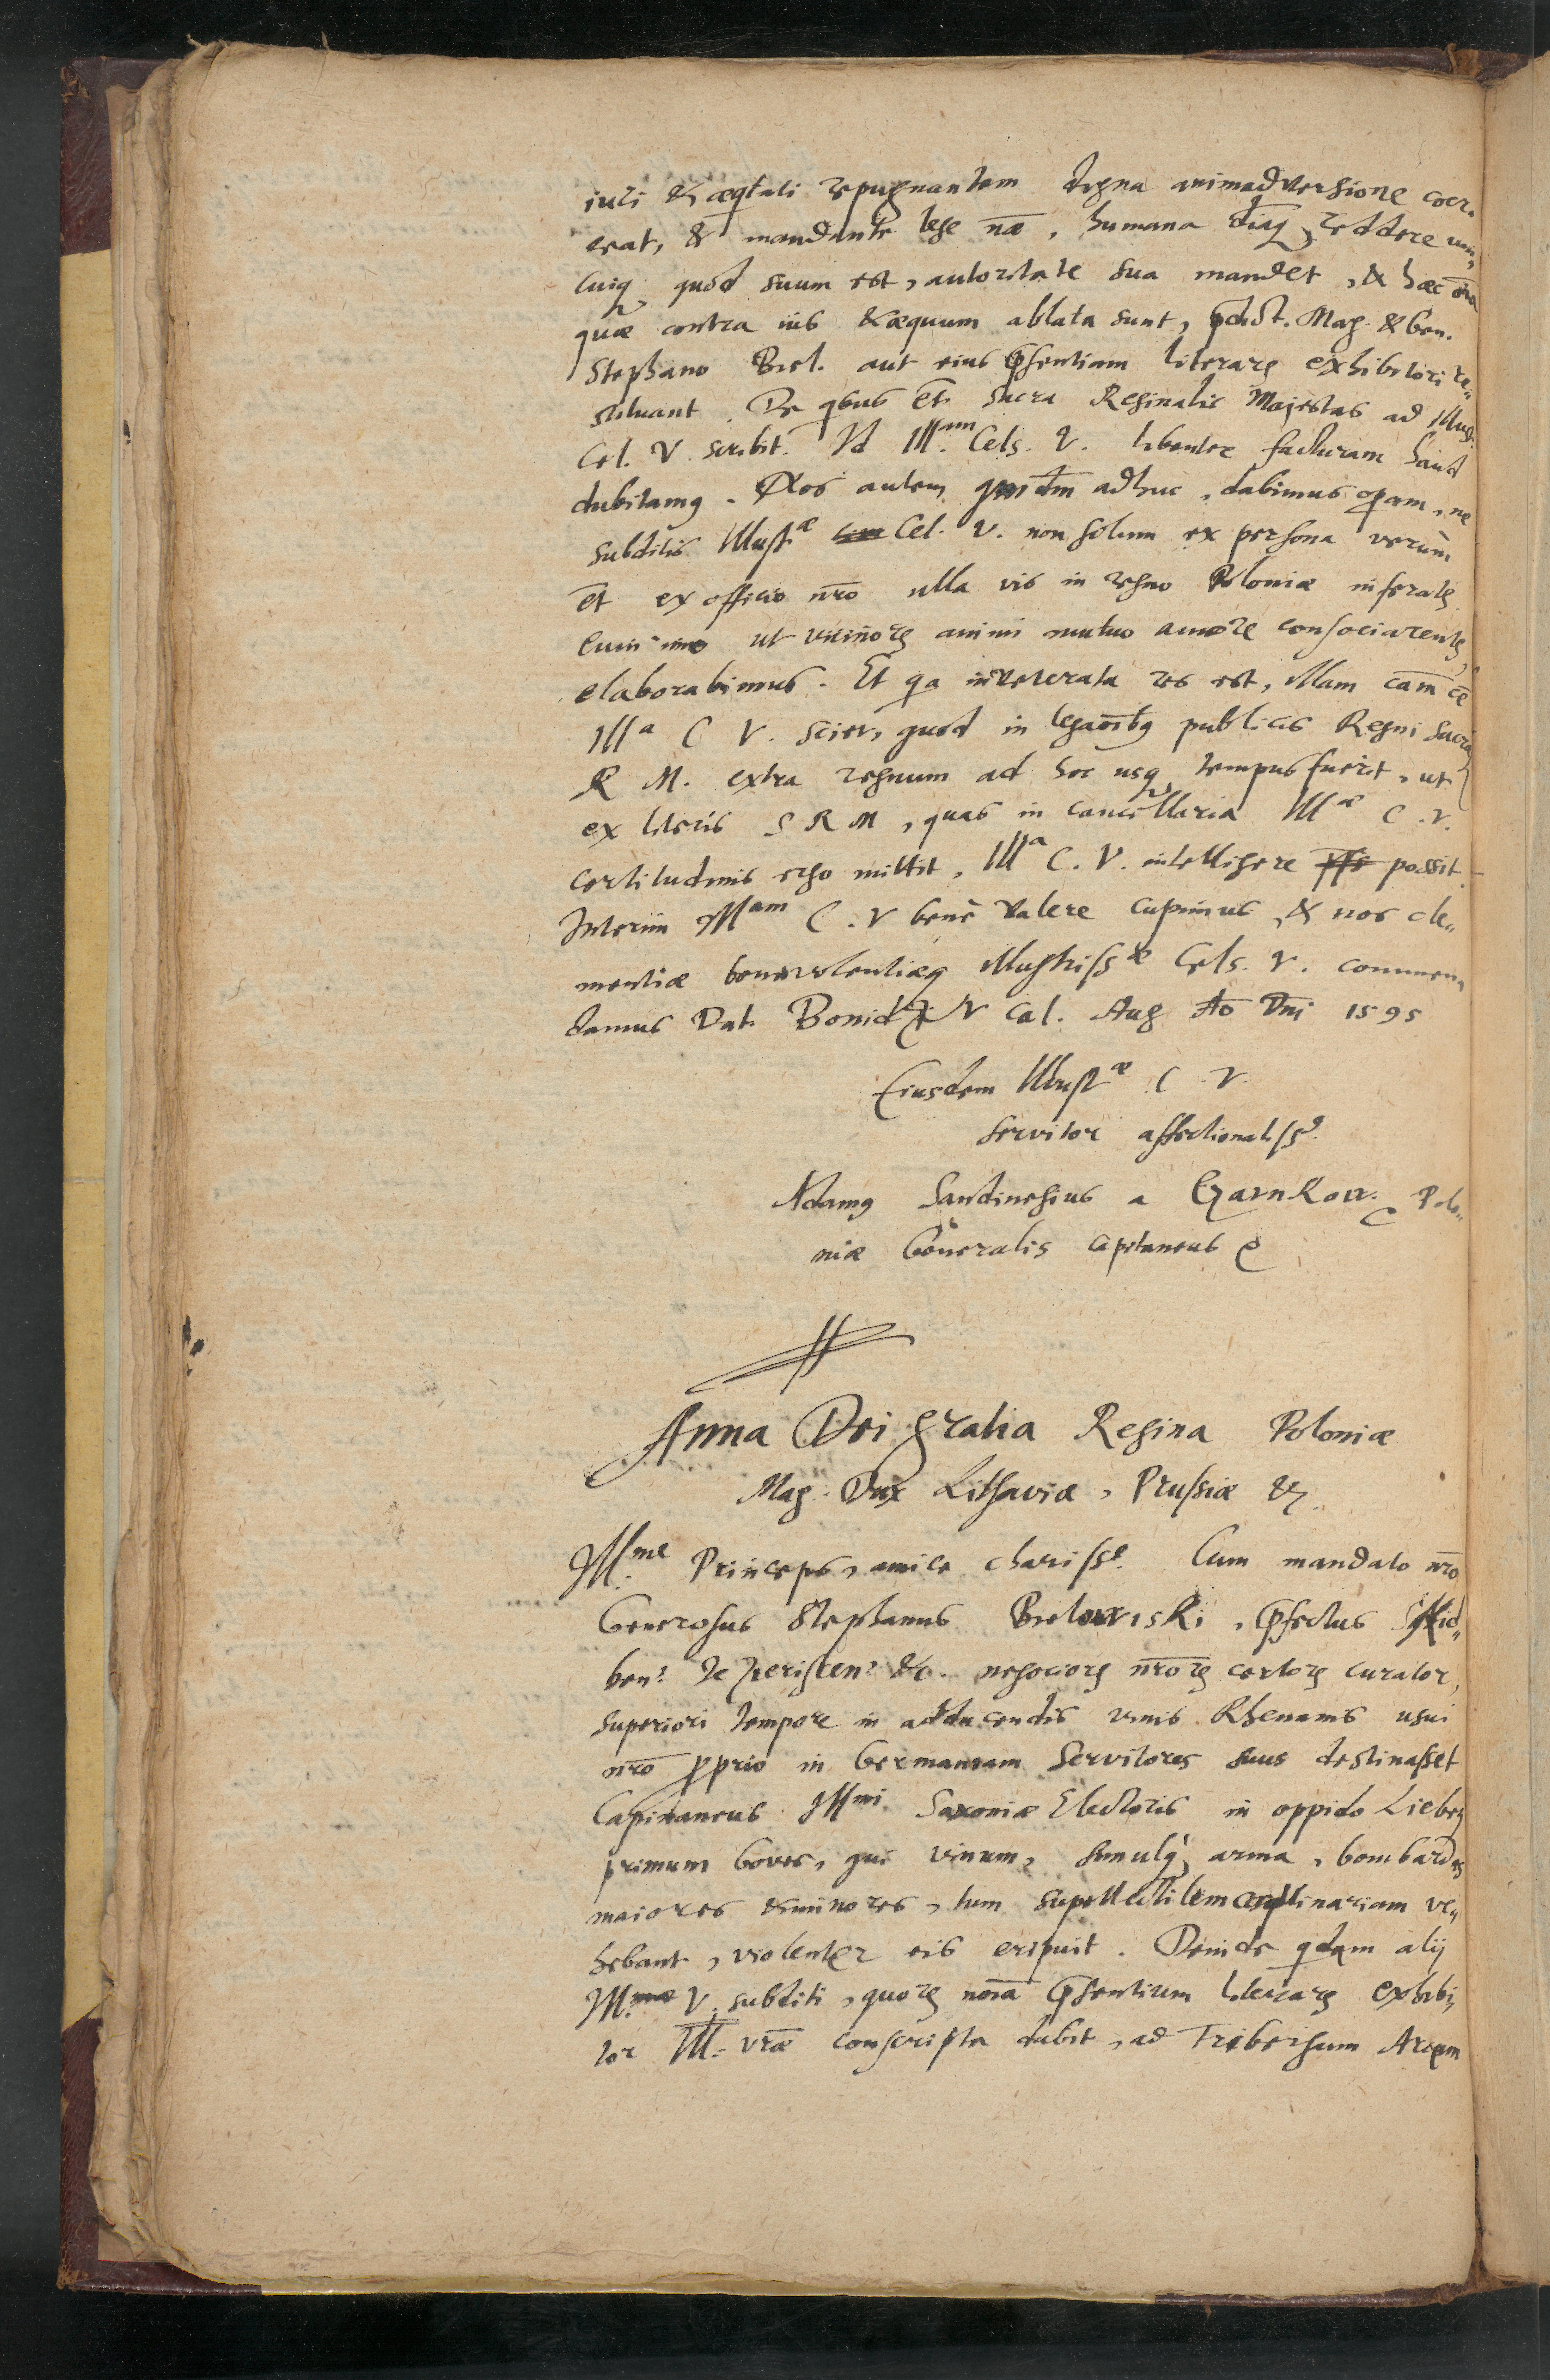 iuri & aeqtati repugnantem digna animadversione coer-
ceat, & mandante lege nāe, humana diāq, reddere uni-
cuiq, quod suum est, autoritate sua mandet, & haec oīa
quae contra ius & aequum ablata sunt, pdict. Mag. & Gen.
Stephano Biel. aut eius pśentiam literarꝫ exhibitori re-
stituant. De qbus et. Sacra Reginalis Majestas ad Illus.
Cel. V. scribit. Id Ill.am Cels. V. libenter facturam haud
dubitamq. Nos autem adhuc, dabimus opam, ne
subditis Illust.ae Cel. V. non solum ex persona verùm
et ex officio nrō ulla vis in regno Poloniae inferatꝫ
imò ut vicinorꝫ animi mutuo amore consociarentꝫ,
elaborabimus. Et qa inveterata res est, illam cam cē
Ill.a C V. sciet, quod in legaōibq publicis Regni Sacra
R M. extra regnum ad hoc usq tempus fuerit, ut
ex literis S R M, quas in cancellaria Ill.ae C. V.
certitudinis ergo mittit, Ill.a C. V. intelligere possit.
Interim Ill.am C. V benè valere cupimus, & nos cle-
mentiae benevolentiaeq Illustriss.ae Cels. V. commen-
damus Dat. V Cal. Aug Aō Dnī 1595
Eiusdem Illust.ae C. V.
servitor affectionatiss9.
Adamq Sandinogius a Czarnkow. Polo-
niae Generalis capitaneus
Anna Dei gratia Regina Poloniae
Mag. Dux Lithaviae, Prussiae &c.
Ill.me Princeps, amice chariss.e Cum mandato nrō
Generosus Stephanus Bielawiski, pfectus
ben? &c. negociorꝫ nrōrꝫ certorꝫ curator,
superiori tempore in adducendis vinis Rhenanis usui
nrō pprio in Germaniam servitores suus destinasset
Capitaneus Ill.mi Saxoniae Electoris in oppido
primum boves, qui vinum, simulq, arma, bombardas
maiores & minores, tum supellectilem ve-
hebant, violenter eis eripuit. Deinde qdam alij
Ill. V. subditi, quorꝫ noīa pśentium literarꝫ exhibi-
tor Ill. vrāe conscripta dabit, ad Arcem